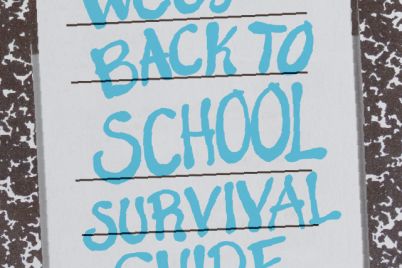 BACK TO
SCHOOL
SURVIVAL
GUIDE